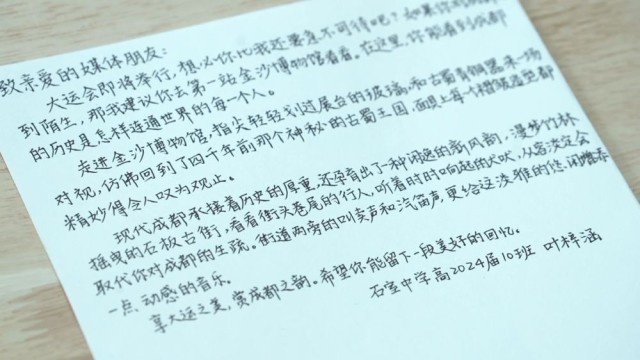 致亲爱的媒体朋友:
大运会即将举行,想必你比我还要急不可待吧?如果你对成都
到陌生,那我建议你去第一站金沙博物馆看看。在这里,你能看到成都
的历史是怎样连通世界的每一个人。
走进金沙博物馆,指尖轻轻划过展台的玻璃,和古蜀青铜器来一场
对视,仿佛回到了四千年前那个神秘的古蜀王国,面具上每个褶皱造型都
精妙得令人叹为观止。
现代成都承接着历史的厚重,还孕育出了一种闲逸的新风韵,漫步竹林
摇曳的石板古街,看看街头巷尾的行人,听着时时响起的犬吠,从容淡定会
取代你对成都的生疏。街道两旁的叫卖声和汽笛声,更给这淡雅的悠闲增添
一点动感的音乐。
享大运之美,赏成都之韵。希望你能留下一段美好的回忆。
石室中学高2024届10班 叶梓涵